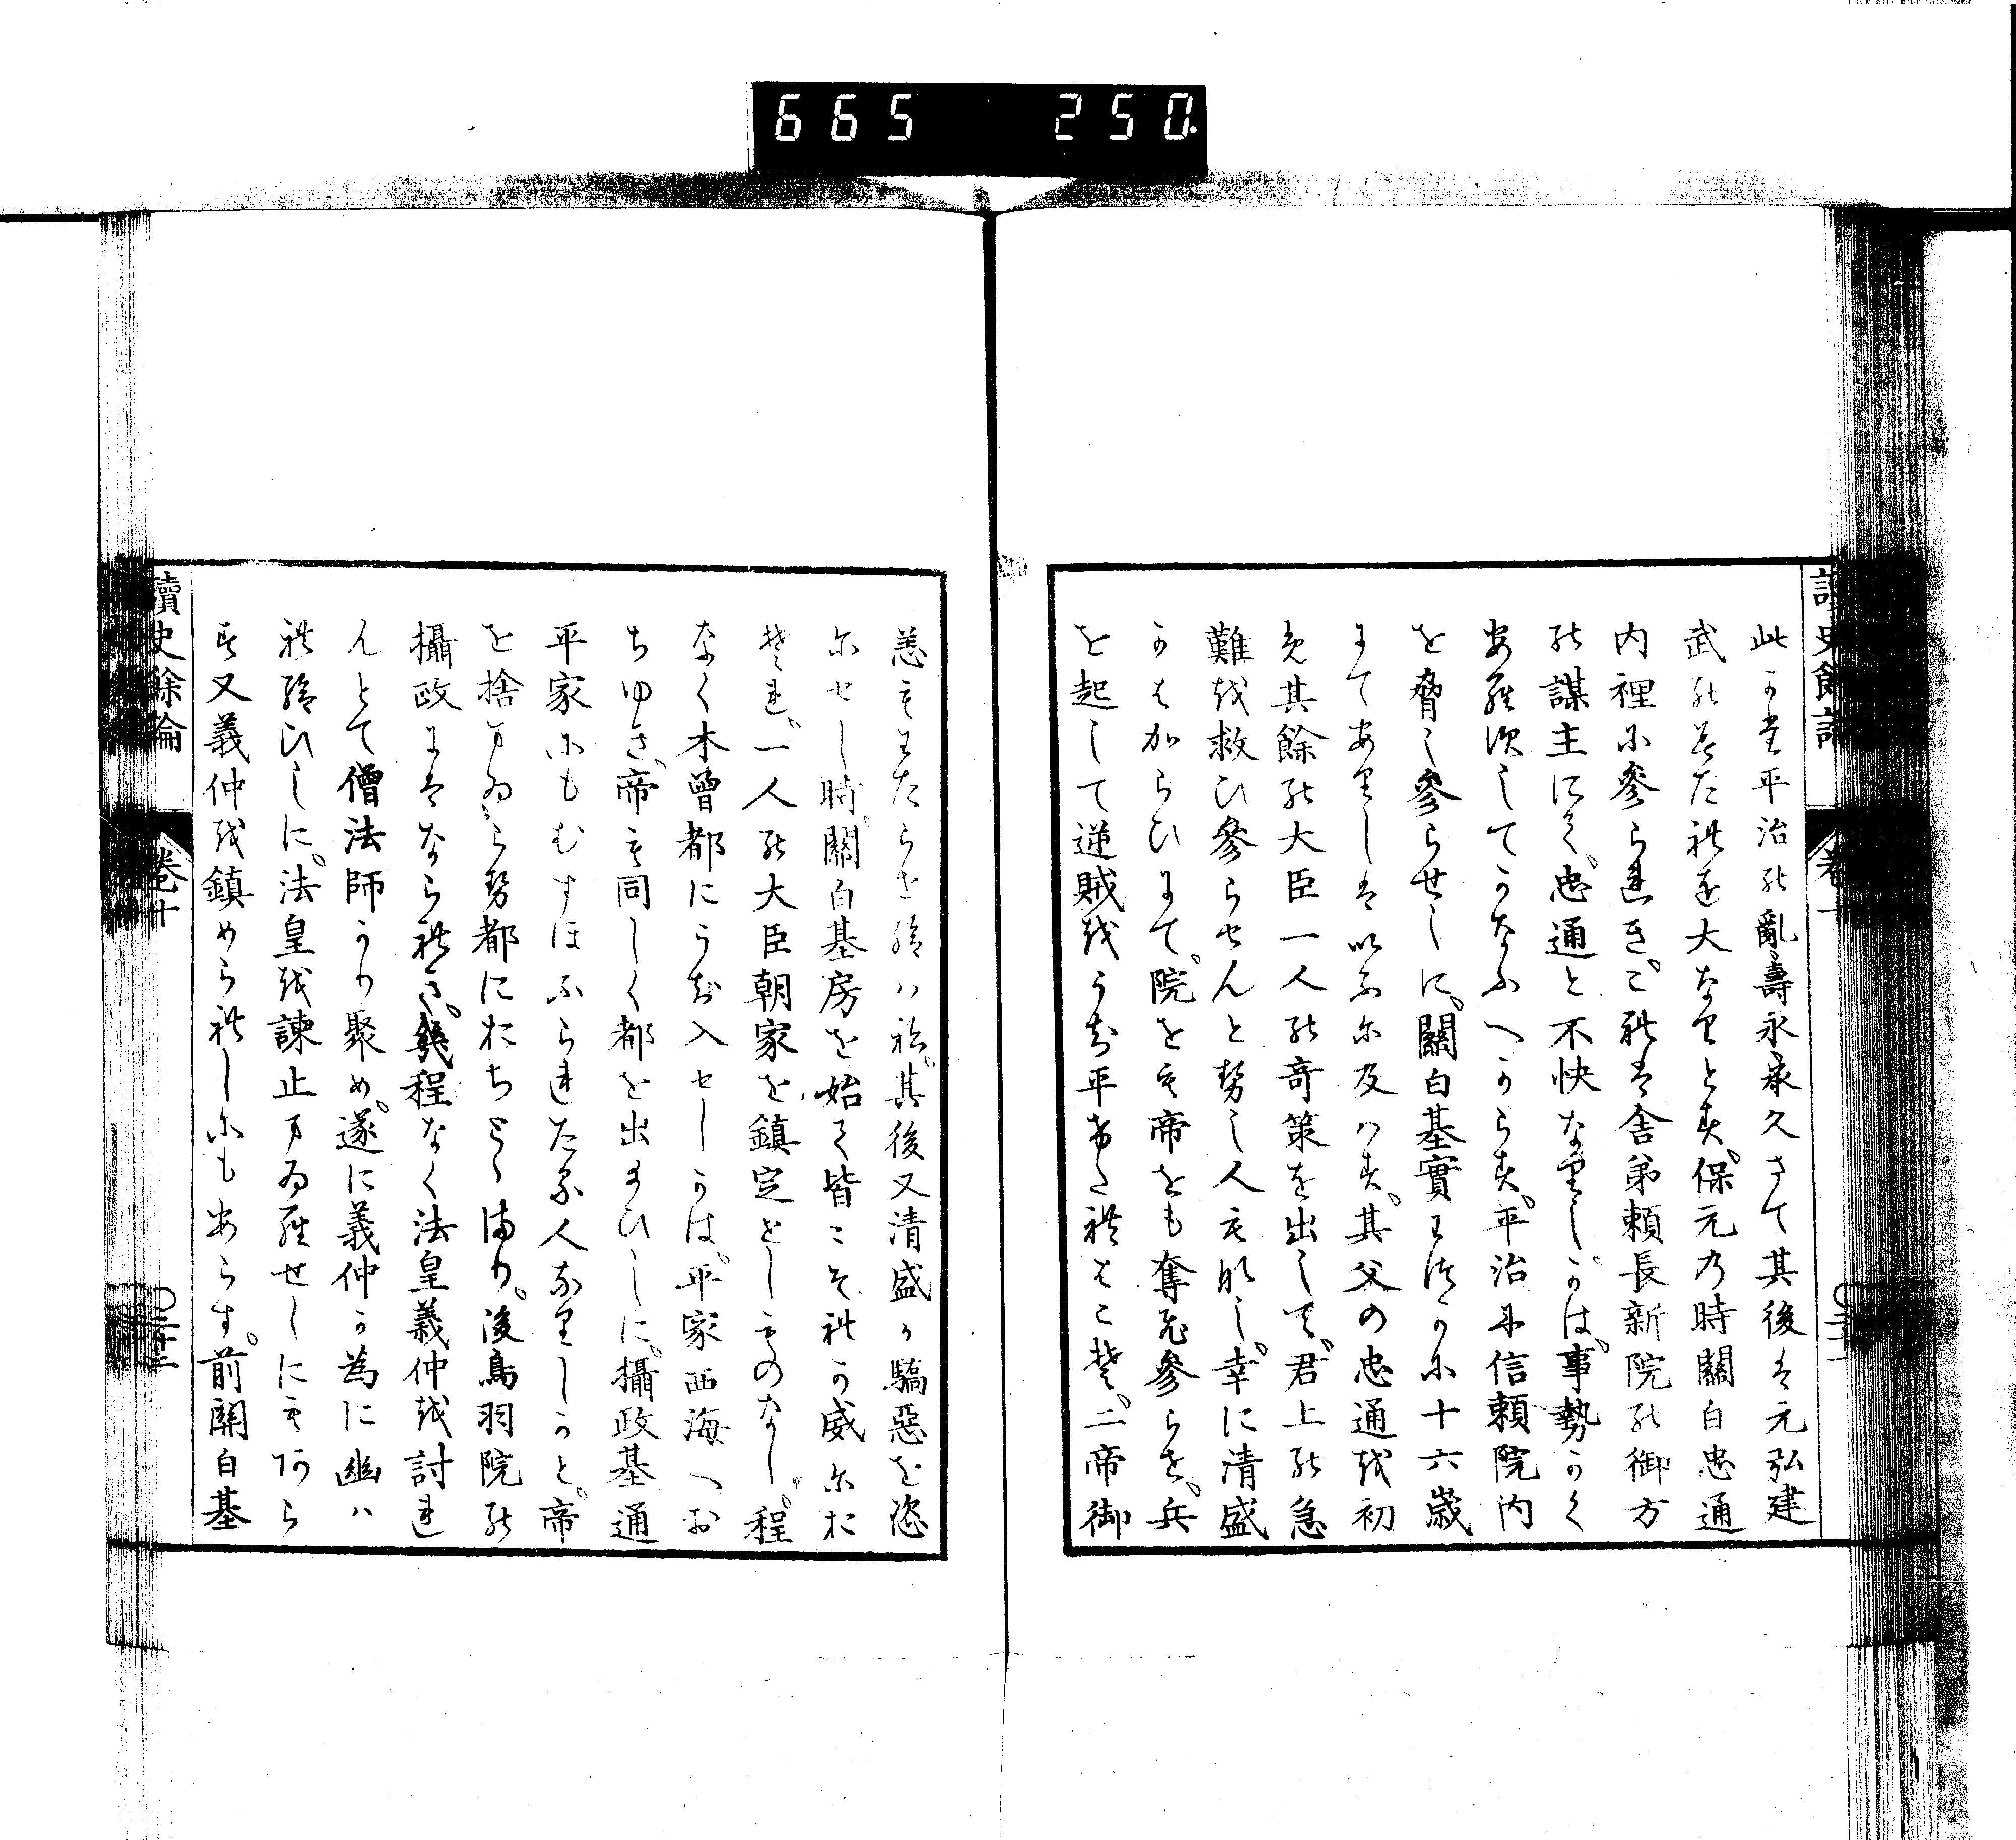 665 250
讀史餘論 卷十
此かた平治の亂壽永承久さて其後は元弘建
武のみたれを大なりとす保元乃時關白忠通
内裡に參られきこれは舎弟頼長新院の御方
の謀主にて忠通と不快なりしかは事勢かく
あらすしてかなふへからす平治に信頼院内
を脅し參らせしに關白基實わつかに十六歳
にてありしはいふに及はす其父の忠通を初
め其餘の大臣一人の奇策を出して君上の急
難を救ひ參らせんと勢し人もなし幸に清盛
かはからひにて院をも帝をも奪ひ參らせ兵
を起して逆賊をうち平けたれはこそ二帝御
恙もわたらせ給ハね其後又清盛か驕惡を恣
にせし時關白基房を始て皆こそれか威にお
それ一人の大臣朝家を鎮定せしものなし程
なく木曾都にうち入せしかは平家西海へお
ちゆき帝も同しく都を出給ひしに攝政基通
平家にもむすほふられたる人なりしかと帝
を捨まゐらせ都におちとゝまり後鳥羽院の
攝政にはなられき幾程なく法皇義仲を討れ
んとて僧法師かり聚め遂に義仲か為に幽ハ
れ給ひしに法皇を諫止まゐらせしにもあら
す又義仲を鎮められしにもあらす前關白基
讀史餘論 卷十